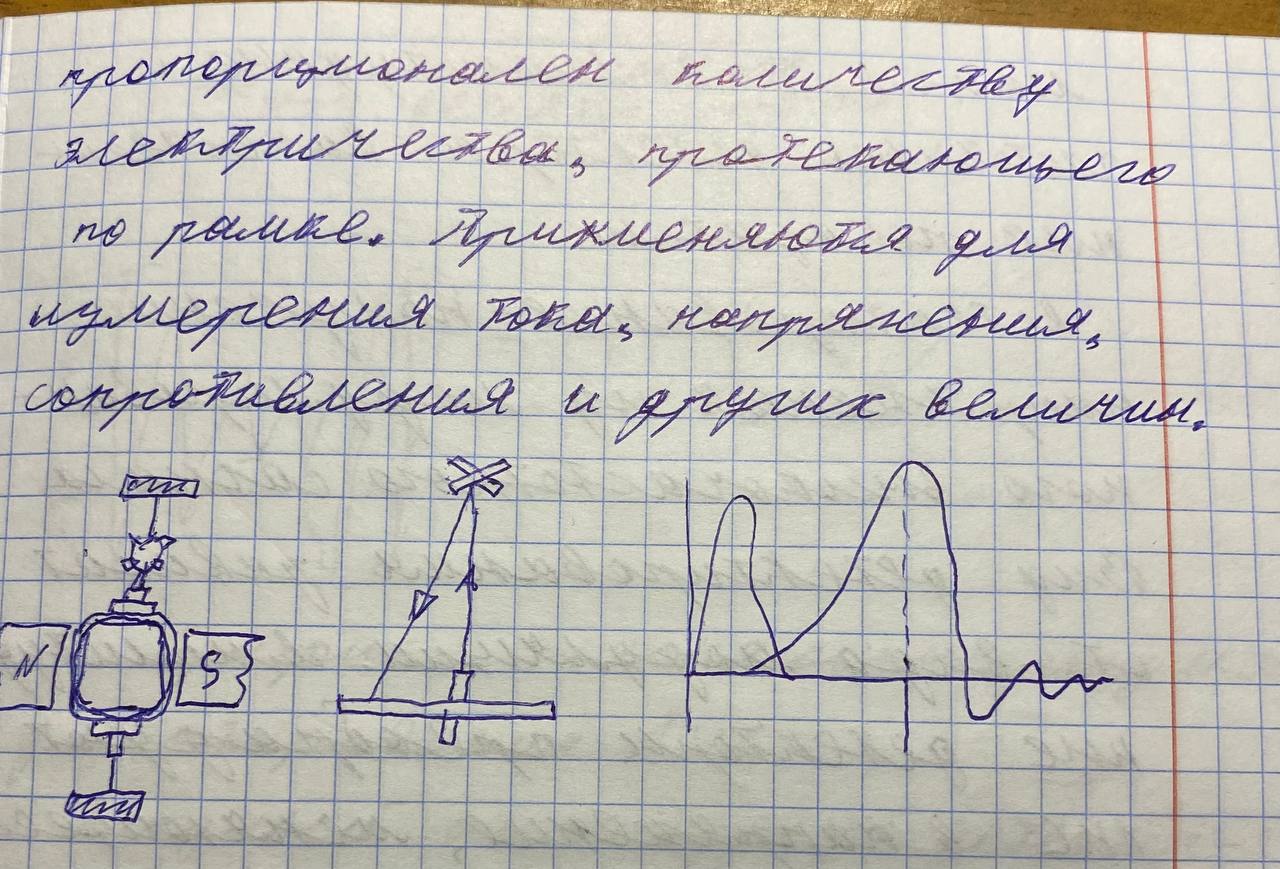 пропорционален количеству
электричества, протекающего
по рамке. Применяются для
измерения тока, напряжения,
сопротивления и других величин.
N S